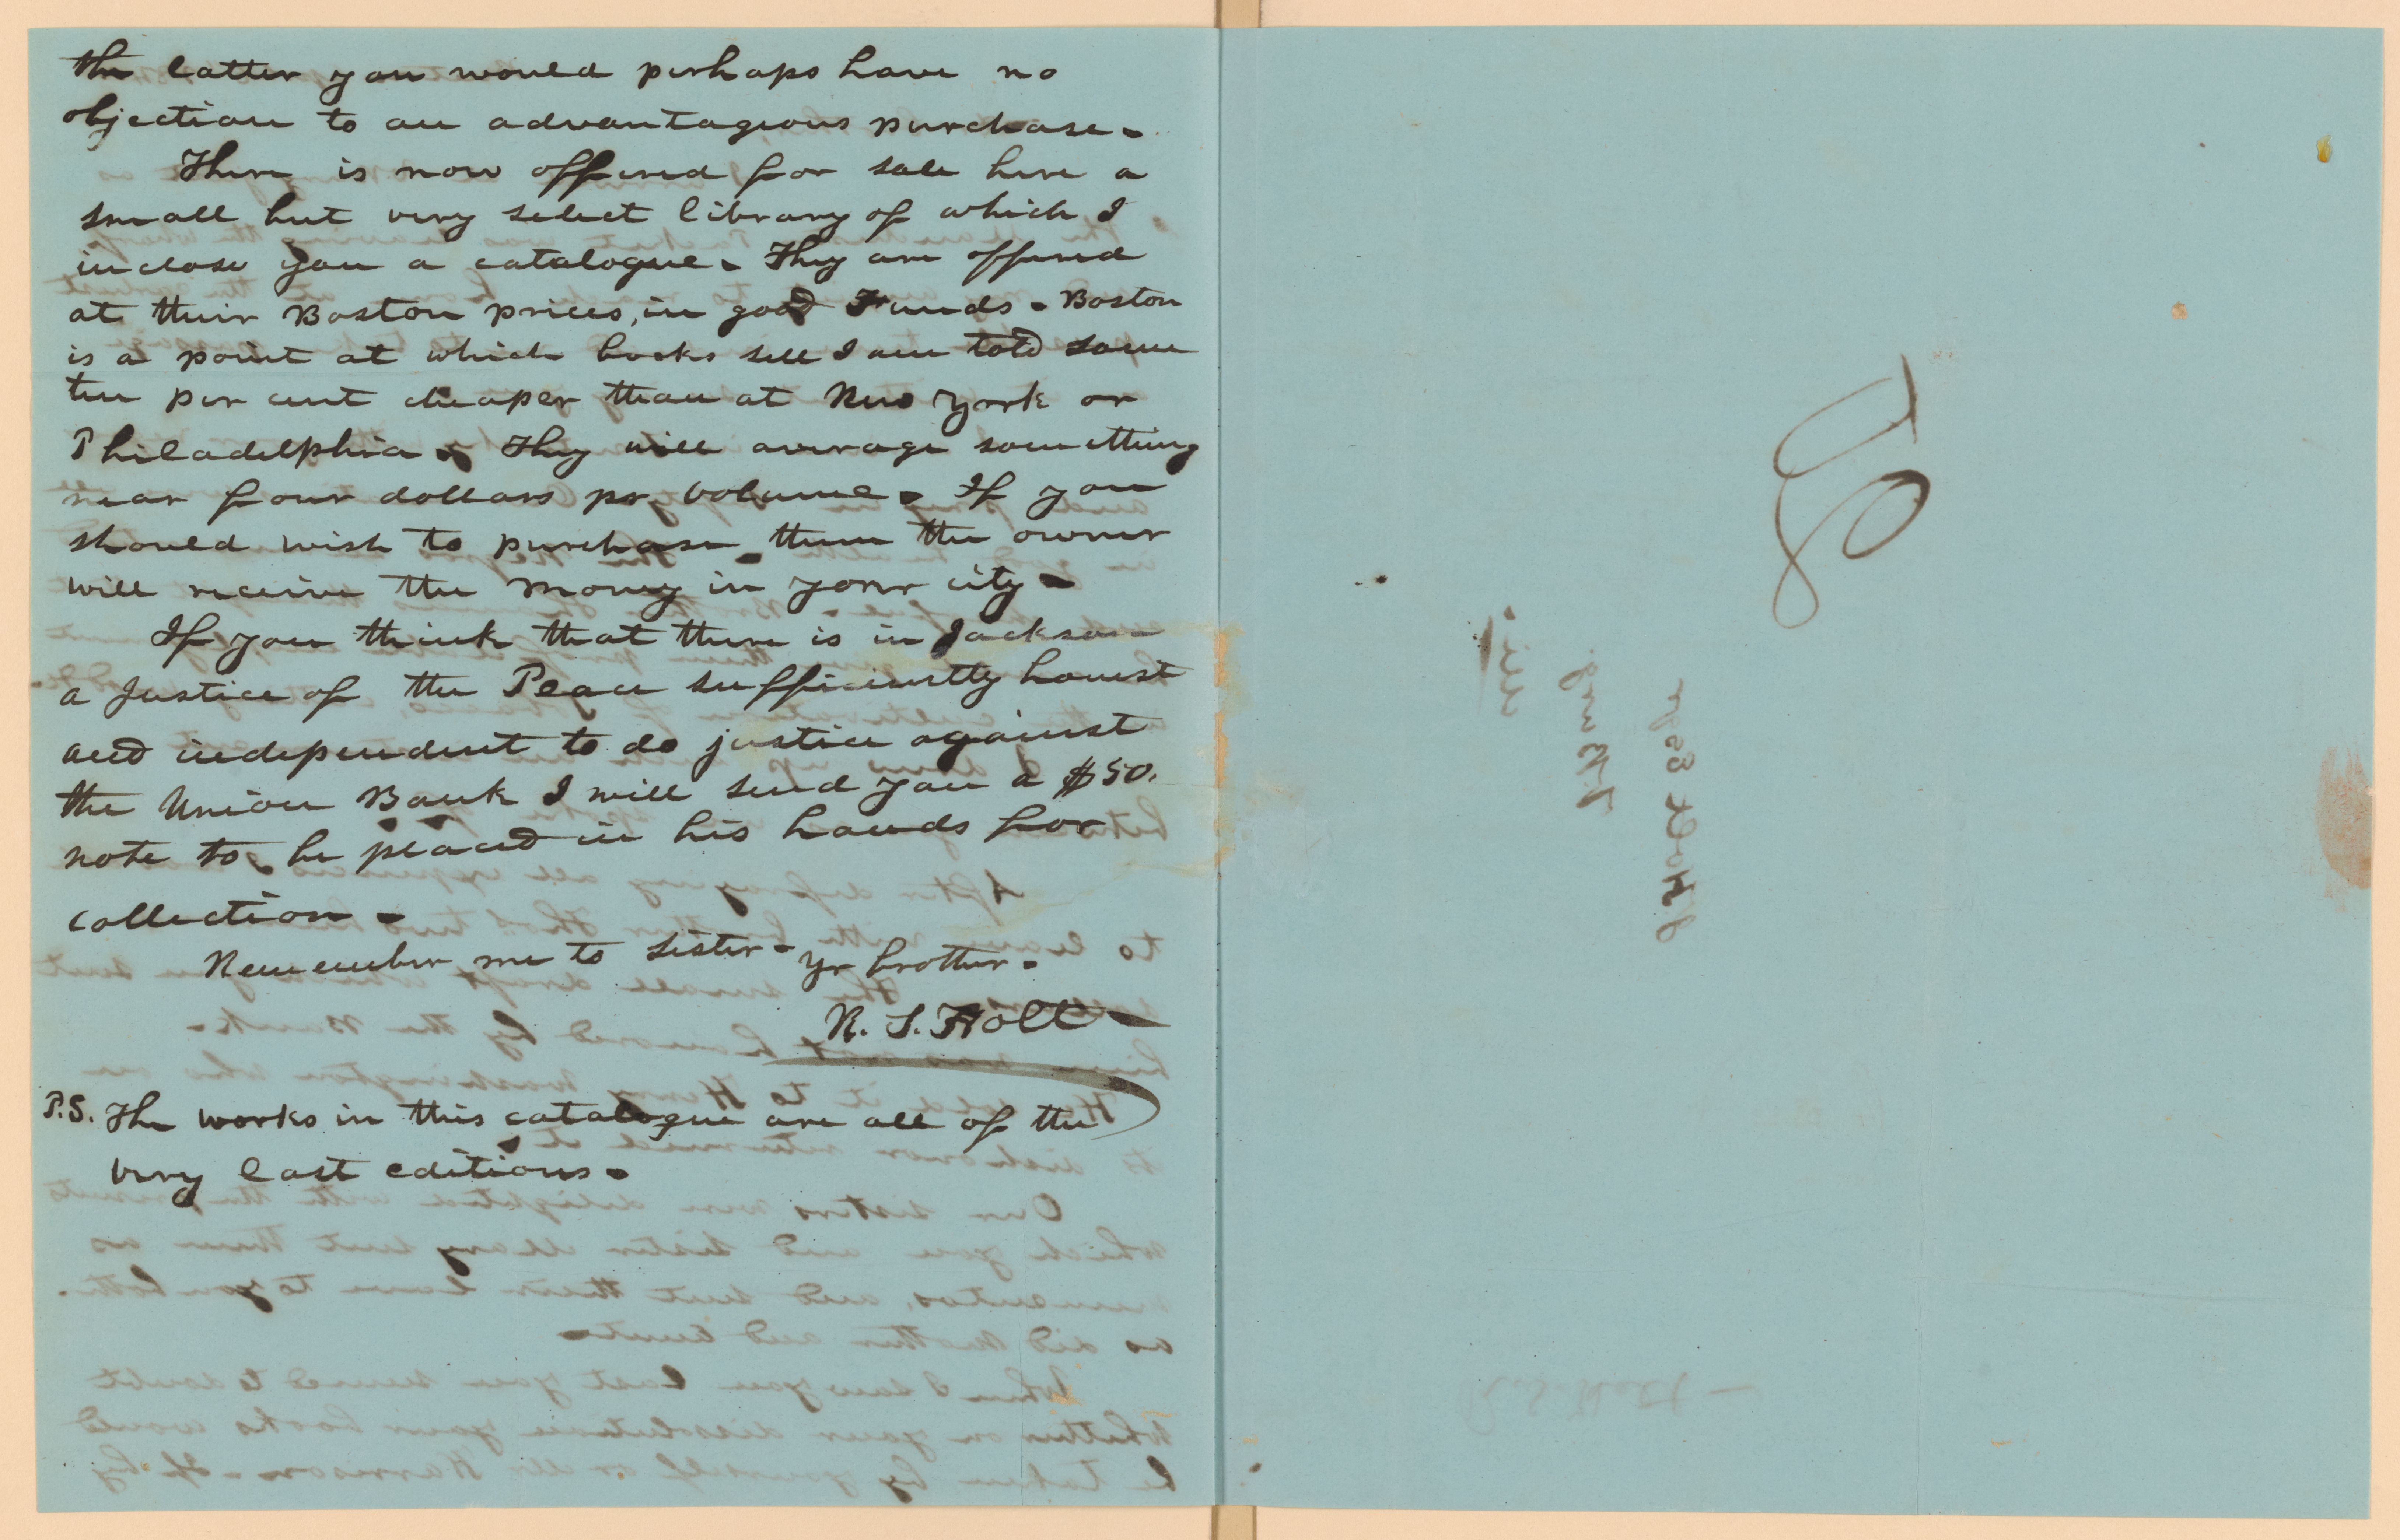 the latter you would perhaps have no
objection to an advantageous purchase.
There is now offered for sale here a
small but very select library of which I
inclose you a catalogue. They are offered
at their Boston prices, in good Funds. Boston
is a point at which books sell I am told some
ten per cent cheaper than at New York or
Philadelphia. They will average something
near four dollars pr. volume. If you
should wish to purchase them the owner
will receive the money in your city.
If you think that there is in Jackson
a Justice of the Peace sufficiently honest
and independent to do justice against
the Union Bank I will send you a $50.
note to be placed in his hands for
collection.
Remember me to sister. yr brother.
R. S. Holt
P.S. The works in this catalogue are all of the
very last editions.